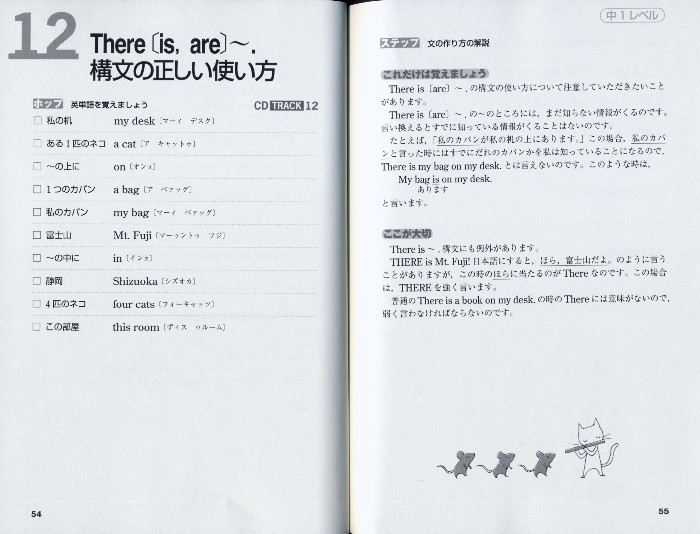 12 There〔is, are〕〜.
構文の正しい使い方
ホップ 英単語を覚えましょう CD TRACK 12
□ 私の机 my desk〔マーィ デスク〕
□ ある1匹のネコ a cat〔ア キャットゥ〕
□ 〜の上に on〔オンヌ〕
□ 1つのカバン a bag〔ア ベァッグ〕
□ 私のカバン my bag〔マーィ ベァッグ〕
□ 富士山 Mt. Fuji〔マーゥントゥ フジ〕
□ 〜の中に in〔インヌ〕
□ 静岡 Shizuoka〔シズオカ〕
□ 4匹のネコ four cats〔フォーキャッツ〕
□ この部屋 this room〔ずィス ゥルーム〕
54
中1レベル
ステップ 文の作り方の解説
これだけは覚えましょう
There is〔are〕〜.の構文の使い方について注意していただきたいこと
があります。
There is〔are〕〜.の〜のところには、まだ知らない情報がくるのです。
言い換えるとすでに知っている情報がくることはないのです。
たとえば、「私のカバンが私の机の上にあります。」この場合、私のカバ
ンと言った時にはすでにだれのカバンかを私は知っていることになるので、
There is my bag on my desk. とは言えないのです。このような時は、
My bag is on my desk.
あります
と言います。
ここが大切
There is 〜.構文にも例外があります。
THERE is Mt. Fuji! 日本語にすると、ほら、富士山だよ。のように言う
ことがありますが、この時のほらに当たるのが There なのです。この場合
は、THERE を強く言います。
普通の There is a book on my desk. の時の There には意味がないので、
弱く言わなければならないのです。
55